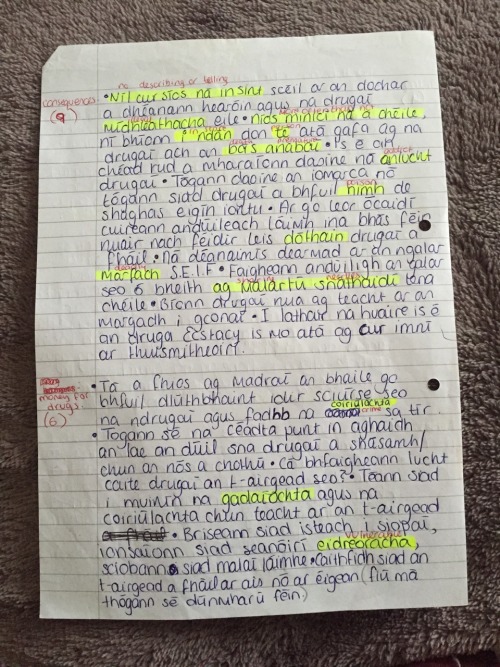 no describing or telling
consequences • Níl cur síos ná insint scéil ar an dochar
(9) a dhéanann hearóin agus na drugaí
mídhleathacha eile • níos minicí ná a chéile,
ní bhíonn i ndán don té atá gafa ag na
drugaí ach an bás anabaí • Is é an
chéad rud a mharaíonn daoine ná anlucht
drugaí • Tógann daoine an iomarca nó
tógann siad drugaí a bhfuil nimh de
shaghas éigin iontu • Ar go leor ócáidí
cuireann andúileach láimh ina bhás féin
nuair nach féidir leis dóthain drugaí a
fháil • Ná déanaimís dearmad ar an ngalar
marfach S.E.I.F • Faigheann andúiligh an galar
seo ó bheith ag malartú snáthaidí lena
chéile • Bíonn drugaí nua ag teacht ar an
margadh i gconaí • I láthair na huaire is é
an druga Ecstacy is mó atá ag cur imní
ar thuismitheoirí.
money for drugs (6) • Tá a fhios ag madraí an bhaile go
bhfuil dlúthbhaint idir sciúirse seo
na ndrugaí agus fadhb na coiriúlachta
crime sa tír
• Tógann sé na céadta punt in aghaidh
an lae an dúil sna drugaí a shásamh/
chun an nós a chothú • Cá bhfaigheann lucht
caite drugaí an t-airgead seo? • Téann siad
i muinín na gadaíochta agus na
coiriúlachta chun teacht ar an t-airgead
• Briseann siad isteach i siopaí,
vulnerable
ionsaíonn siad seanóirí eidreoracha,
sciobann siad málaí láimhe • Caithfidh siad an
t-airgead a fháil ar ais nó ar éigean (fiú má
thógann sé dúnmharú féin)